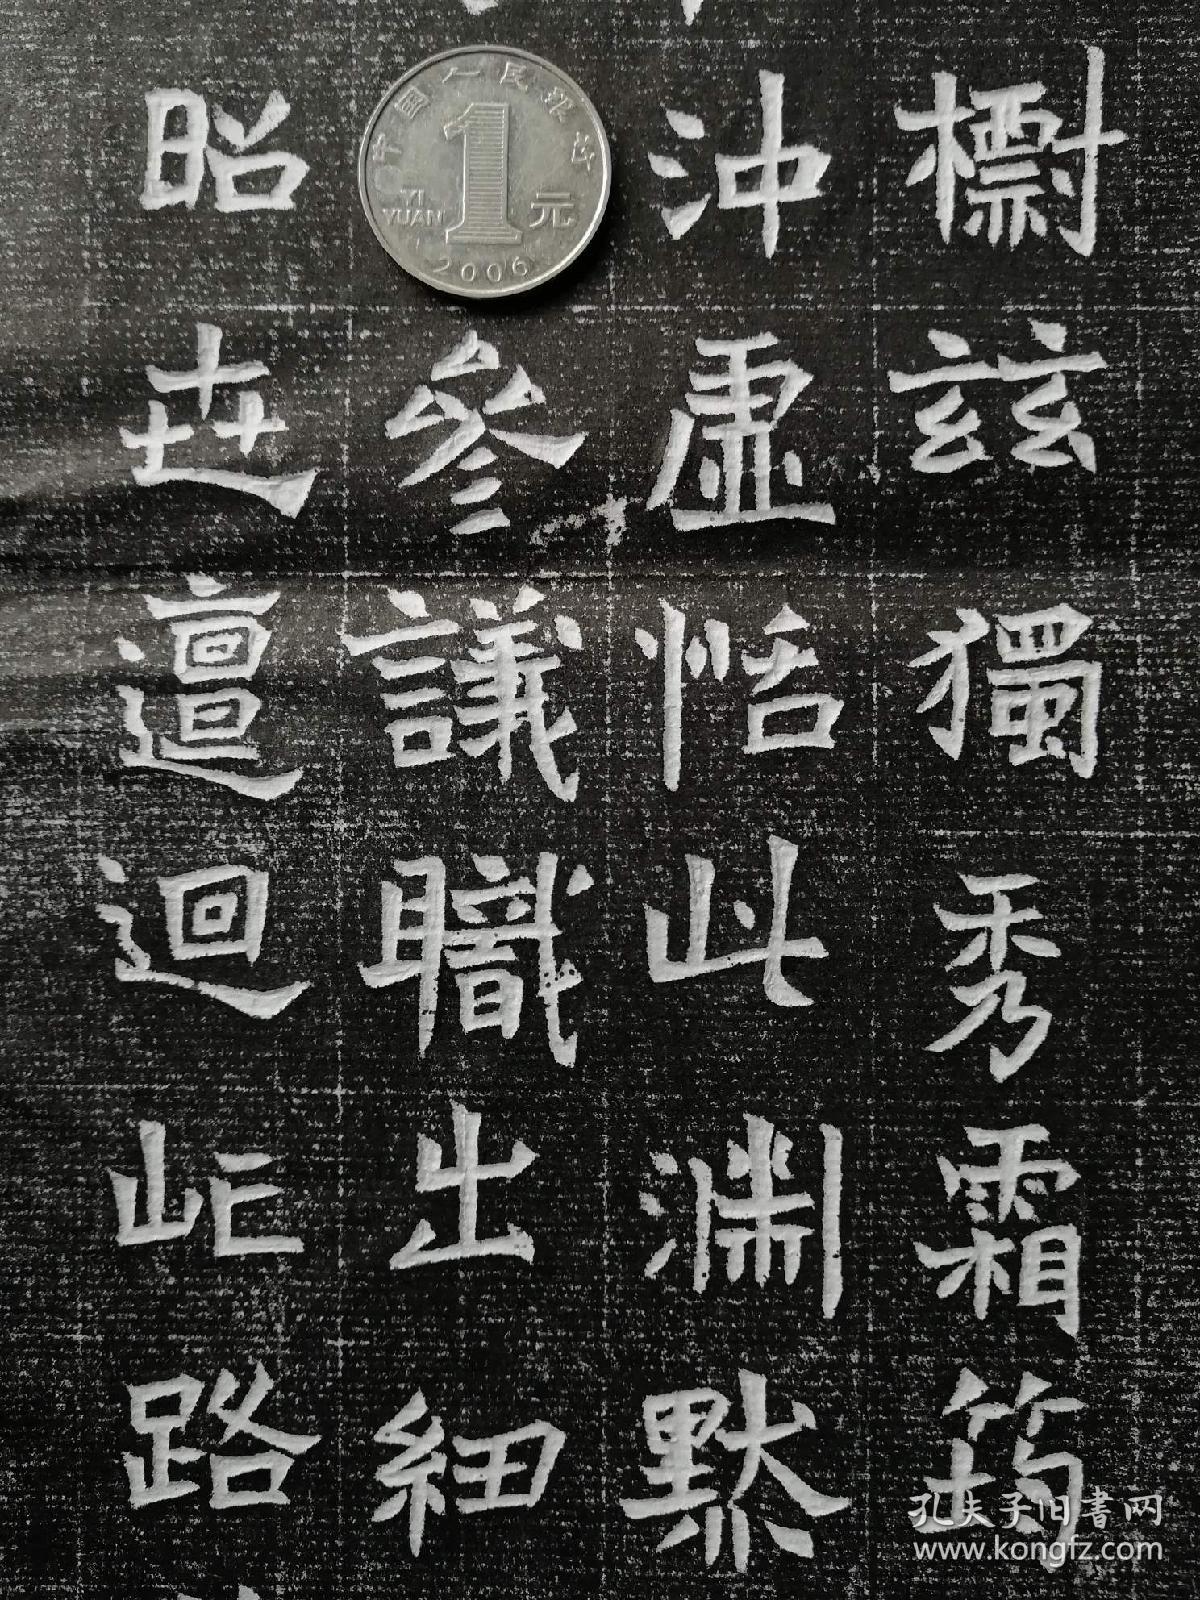 玆獨秀霜筠
沖虛恬此淵默
參議職出細
昭世邅迴路
中国人民银行
YI YUAN 1 元
2006
孔夫子旧書网
www.kongfz.com